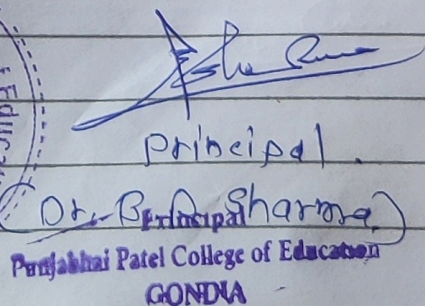 Principal.
(Dr. B. D. Sharma)
Principal
Punjabhai Patel College of Education
GONDIA
Educa